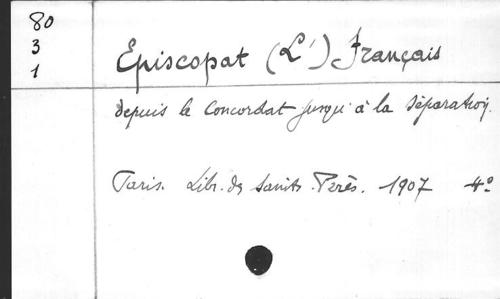 80
3
1
Episcopat (L') Français
depuis le Concordat jusqu'à la Séparation.
Paris. Libr. des Saints-Pères. 1907 4°